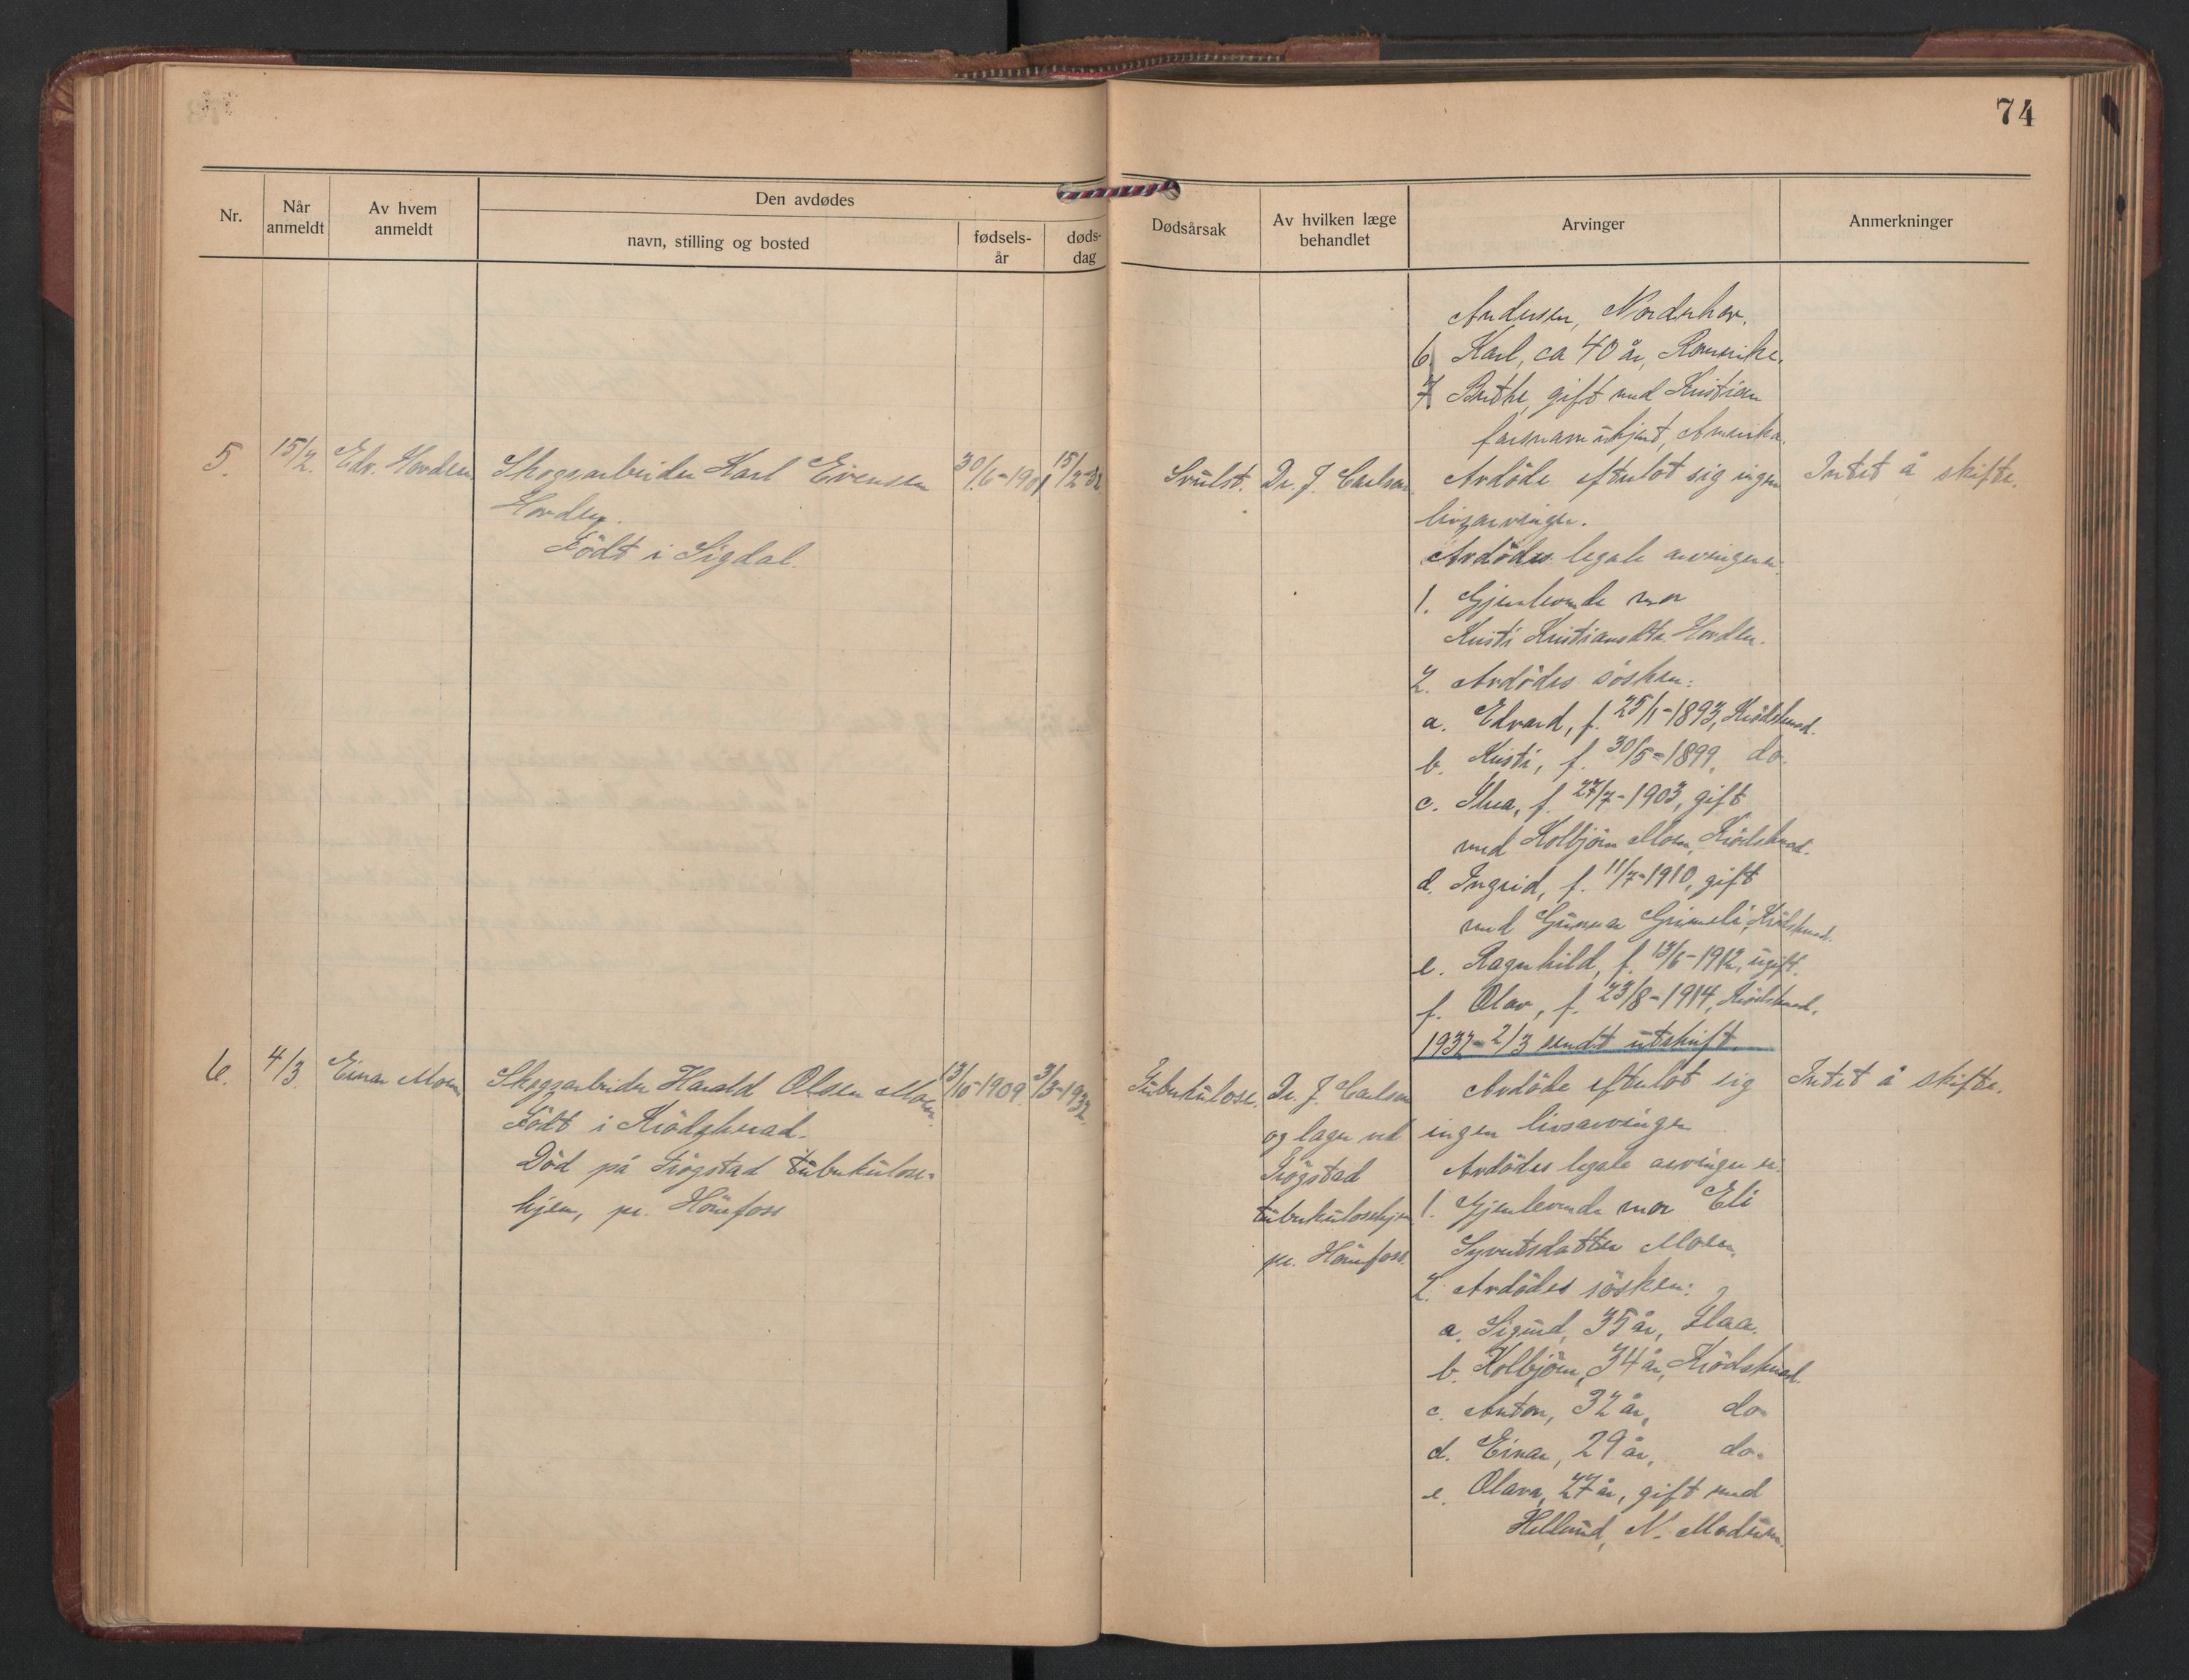 74
Nr.
Når anmeldt
Av hvem anmeldt
Den avdødes
navn, stilling og bosted
fødselsår
dødsdag
Dødsårsak
Av hvilken læge behandlet
Arvinger
Anmerkninger
Andersen, Norderhov.
6) Karl, ca 40 år, Romerike.
7) Berthe, gift med Kristian
farsnavn ukjent, Amerika.
5. 15/2. Edv. Hovden Skogsarbeider Karl Evensen 30/6-1901 15/2-32
Hovden.
Født i Sigdal.
Svulst. Dr. J. Carlsen. Avdøde efterlot sig ingen Intet å skifte.
livsarvinger.
Avdødes legale arvinger er:
1. Gjenlevende mor
Kristi Kristiansdtr. Hovden.
2. Avdødes søsken:
a. Edvard, f. 25/1-1893, Krødsherad.
b. Kristi, f. 30/5-1899, do.
c. Thea, f. 27/7-1903, gift
med Kolbjørn Moen, Krødsherad.
d. Ingrid, f. 11/7-1910, gift
med Gunnar Grimeli, Krødsherad.
e. Ragnhild, f. 13/6-1912, ugift.
f. Olav, f. 23/8-1914, Krødsherad.
1932-2/3 sendt utskrift.
6. 4/3. Einar Moen Skogsarbeider Harald Olsen Moen. 13/10-1909. 3/3-1932.
Født i Krødsherad.
Død på Frøgstad tuberkulose-
hjem, pr. Hønefoss
Tuberkulose. Dr. J. Carlsen Avdøde efterlot sig Intet å skifte.
og læger ved ingen livsarvinger
Frøgstad Avdødes legale arvinger er:
tuberkulosehjem 1. Gjenlevende mor Eli
pr. Hønefoss. Syvertsdatter Moen.
2. Avdødes søsken:
a. Sigurd, 35 år, Flaa.
b. Kolbjørn, 34 år, Krødsherad.
c. Anton, 32 år, do.
d. Einar, 29 år, do.
e. Olava, 27 år, gift med
Hellerud, N. Modum.